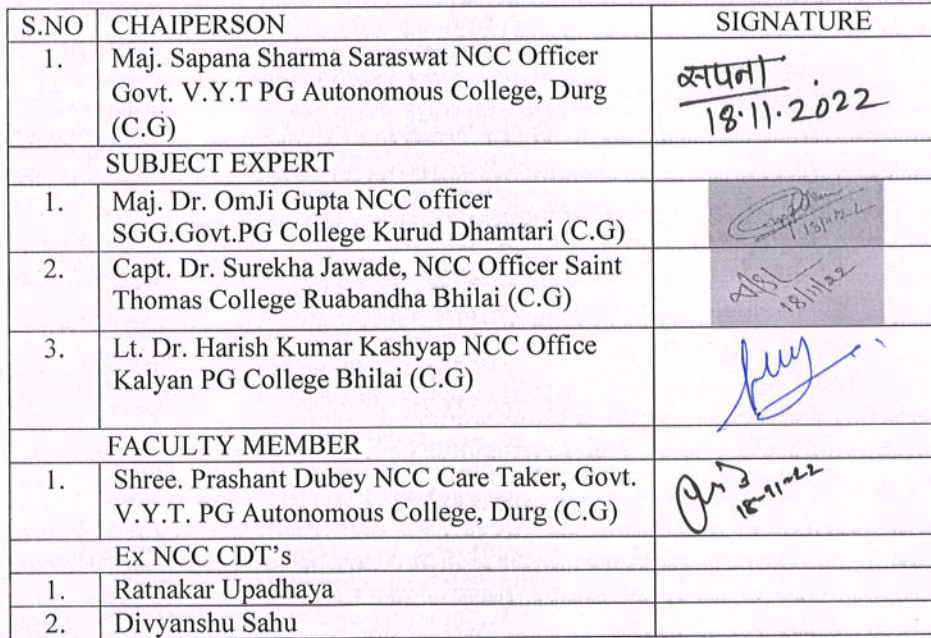 S.NO CHAIPERSON SIGNATURE
1. Maj. Sapana Sharma Saraswat NCC Officer
Govt. V.Y.T PG Autonomous College, Durg
(C.G)
सपना
18.11.2022
SUBJECT EXPERT
1. Maj. Dr. OmJi Gupta NCC officer
SGG.Govt.PG College Kurud Dhamtari (C.G)
2. Capt. Dr. Surekha Jawade, NCC Officer Saint
Thomas College Ruabandha Bhilai (C.G)
18/11/22
3. Lt. Dr. Harish Kumar Kashyap NCC Office
Kalyan PG College Bhilai (C.G)
FACULTY MEMBER
1. Shree. Prashant Dubey NCC Care Taker, Govt.
V.Y.T. PG Autonomous College, Durg (C.G)
Ex NCC CDT's
1. Ratnakar Upadhaya
2. Divyanshu Sahu